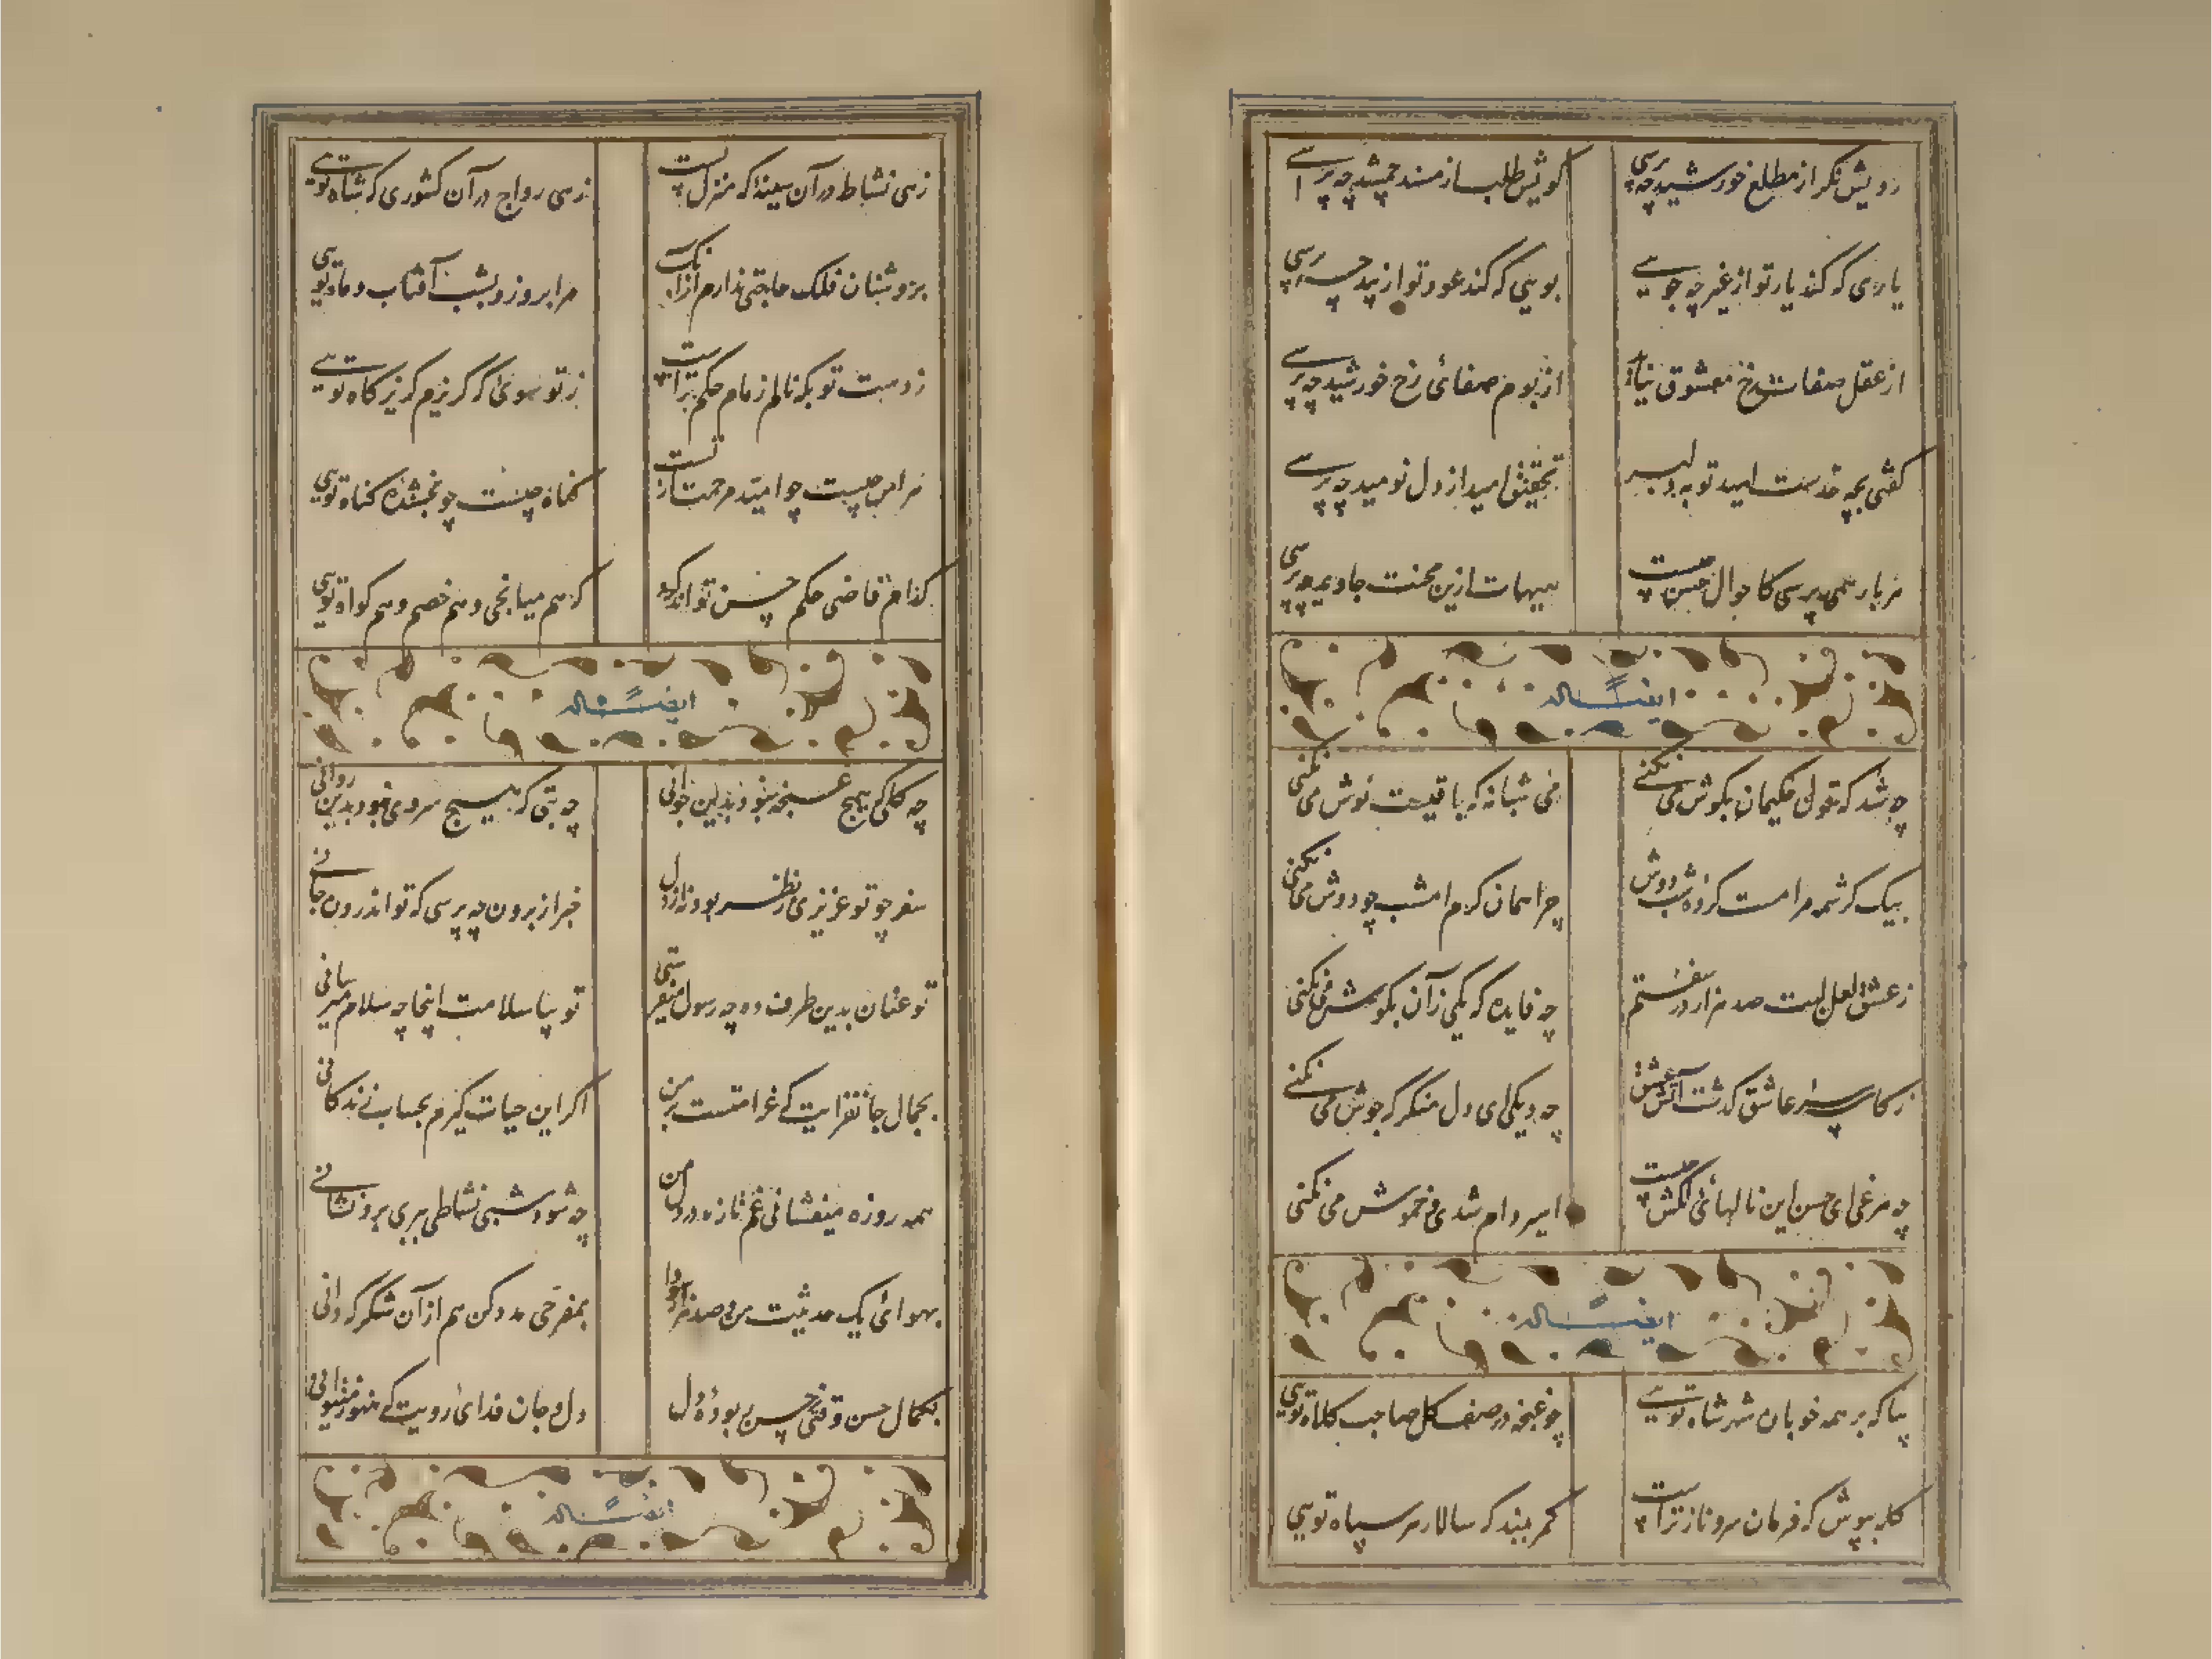 رویش نگر از مطلع خورشید چه پرسی
کویش طلب از مسند جمشید چه پرسی
یاری که کند یار تو از غیر چه جویی
بویی که کند عود تو از بید چه پرسی
از عقل صفات رخ معشوق نیاید
از بوم صفائی رخ خورشید چه پرسی
گفتی بچه حدست امید تو به دلبر
تحقیق امید از دل نومید چه پرسی
هر بار همی پرسی کاحوال حسن چیست
هیهات ازین محنت جاوید چه پرسی
ایضاً له
چه شد که قول حکیمان بگوش می نکنی
می شبانه که باقیست نوش می نکنی
بیک کرشمه مرا مست کرده شب دوش
چرا همان کرم امشب چو دوش می نکنی
ز عشق لعل لبت صد هزار در سفتم
چه فایده که یکی زآن بگوش می نکنی
ز کاسه سر عاشق گذشت آتش عشق
چه دیکی ای دل منکر که جوش می نکنی
چه مرغی ای حسن این نالهائی دلکش چیست
اسیر دام شدی و خموش می نکنی
ایضاً له
بیا که بر همه خوبان شهر شاه تویی
چو غنچه در صف گل صاحب کلاه تویی
کله بپوش که فرمان سرو ناز تراست
کمر ببند که سالار سر سپاه تویی
زهی نشاط در آن سینهٔ که منزل تست
زهی رواج در آن کشوری که شاه تویی
بروشنان فلک حاجتی ندارم ازآنک
مرا بروز و بشب آفتاب و ماه تویی
ز دست تو بکه نالم زمام حکم تراست
ز تو بسوی که گریزم گریزگاه تویی
هراس چیست چو امید مرحمت از تست
گناه چیست چو بخشنده گناه تویی
کدام قاضی حکم حسن تواند کرد
که هم میانجی و هم خصم و هم گواه تویی
ایضاً له
چه گلی که هیچ غنچه نبود بدین جوانی
چه بتی که هیچ سروی نبود بدین روانی
سفر چو تو عزیزی ز نظر بود نه از دل
خبر از برون چه پرسی که تو اندرون جانی
تو عنان بدین طرف ده چه رسول میفرستی
تو بیا سلامت اینجا چه سلام میرسانی
بجمال جانفزایت که غرامتست بر من
اگر این حیات گیرم بحساب زندگانی
همه روزه میفشانی غم تازه در دل من
چه شود شبی نشاطی ببری برو نشانی
بهوائی یک حدیثت من و صد هزار سودا
بمفرحی مدد کن هم از آن شکر که دانی
بکمال حسن وقتی حسن بوده دلها
دل و جان فدای رویت که هنوز
ایضاً له